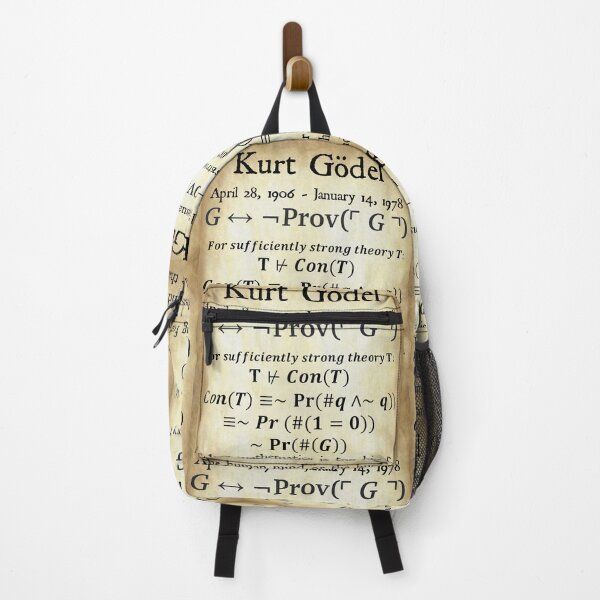 Kurt Gödel
April 28, 1906 - January 14, 1978
G ↔ ¬Prov(⌜ G ⌝)
For sufficiently strong theory T:
T ⊬ Con(T)
Kurt Gödel
G ↔ ¬Prov(⌜ G ⌝)
or sufficiently strong theory T:
T ⊬ Con(T)
Con(T) ≡∼ Pr(#q ∧∼ q))
≡∼ Pr (#(1 = 0))
∼ Pr(#(G))
14, 1978
G ↔ ¬Prov(⌜ G ⌝)